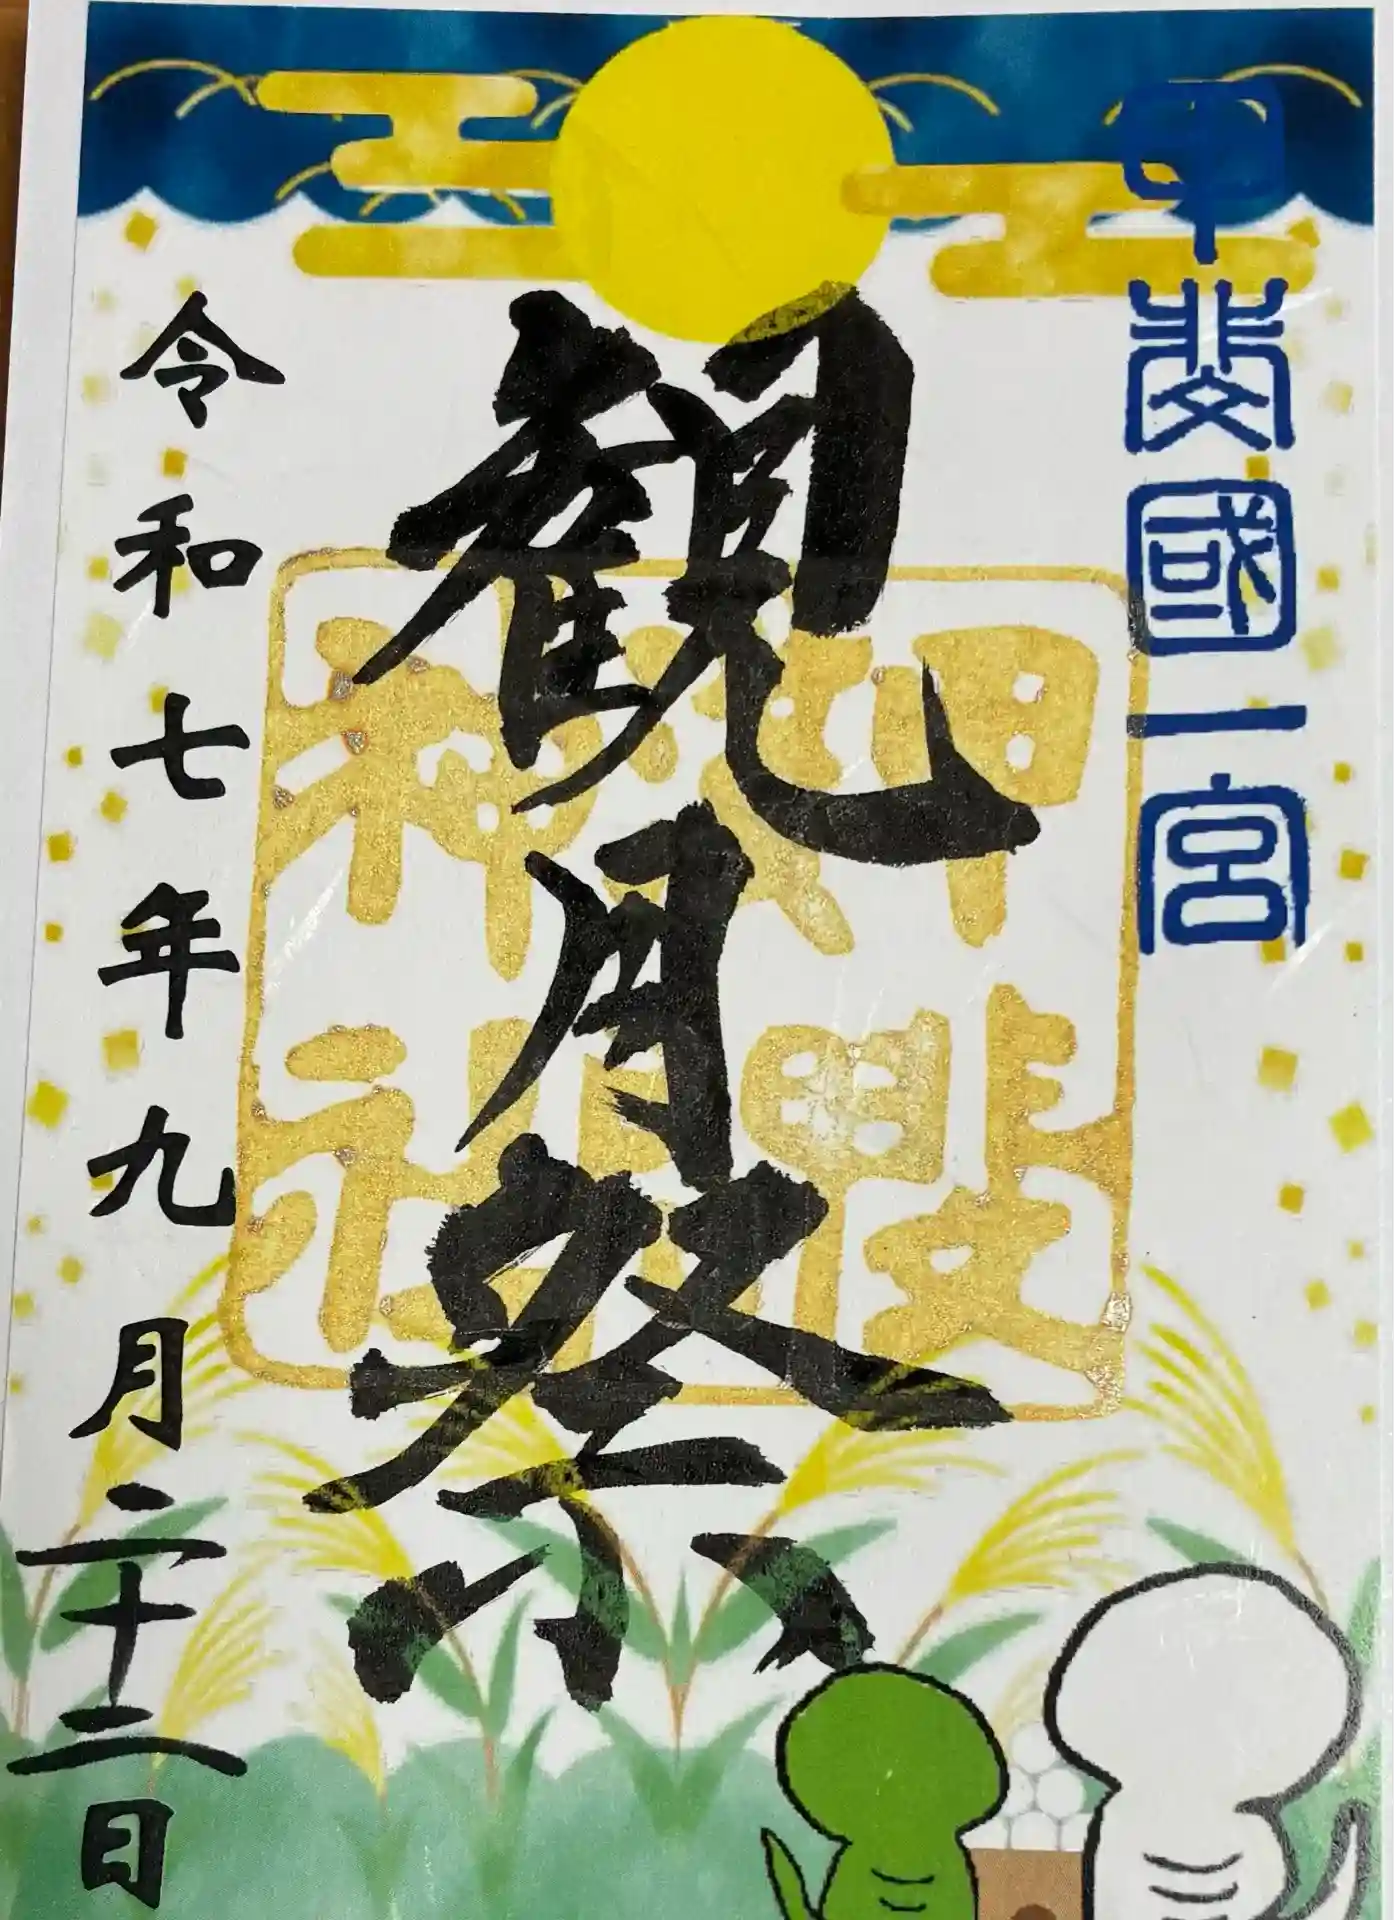 甲斐國一宮
観月祭
令和七年九月二十二日
甲斐
神社